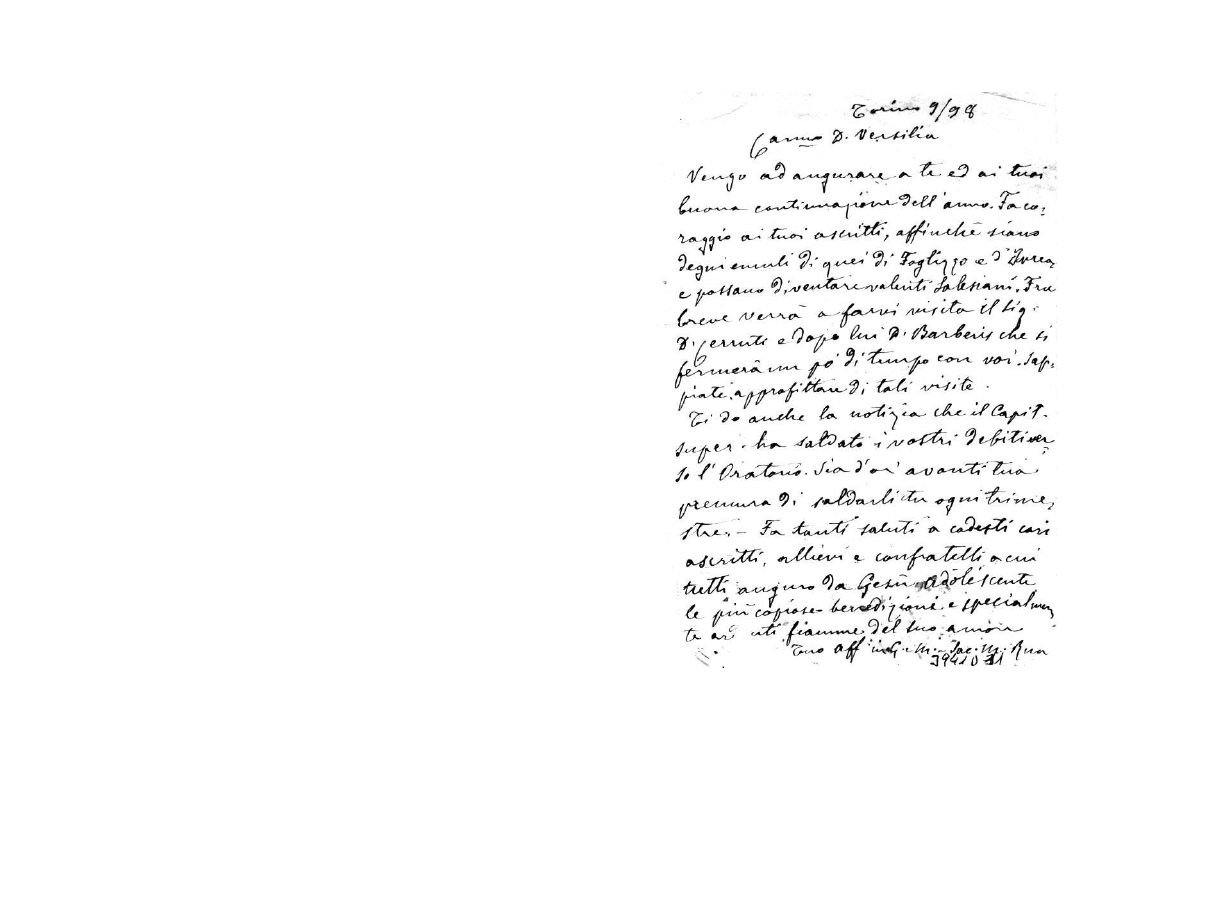 Torino 9/98
Carmo D. Versilia
Vengo ad augurare a te ed ai tuoi
buona continuazione dell'anno. Fa co-
raggio ai tuoi ascritti, affinchè siano
degni emuli di quei di Foglizzo e d'Ivrea
e possano diventare valenti Salesiani. Fra
breve verrà a farvi visita il Sig.
D. Cerruti e dopo lui D. Barberis che si
fermerà un pò di tempo con voi. Sap-
piate approfittare di tali visite.
Ti do anche la notizia che il Capit.
Super. ha saldato i vostri debiti ver-
so l'Oratorio. Sia d'or avanti tua
premura di saldarli tu ogni trime-
stre. - Fa tanti saluti a codesti cari
ascritti, allievi e confratelli a cui
tutti auguro da Gesù adolescente
le più copiose benedizioni e specialmen-
te fiamme del suo amore
Tuo aff in G. e M. - Sac. M. Rua